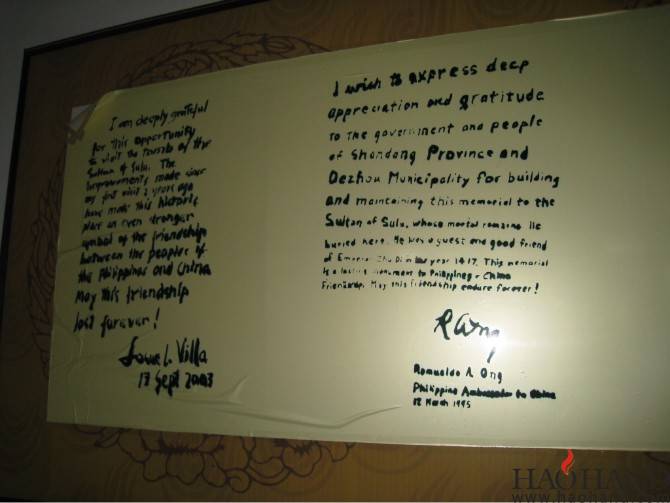 I am deeply grateful
for this opportunity
to visit the Tomb of the
Sultan of Sulu. The
improvements made since
my first visit 2 years ago
have made this historic
place an even stronger
symbol of the friendship
between the peoples of
the Philippines and China
May this friendship
last forever!
L. Villa
17 Sept 2003
I wish to express deep
appreciation and gratitude
to the government and people
of Shandong Province and
Dezhou Municipality for building
and maintaining this memorial to the
Sultan of Sulu, whose mortal remains lie
buried here. He was a guest and good friend
of Emperor Zhu Di in the year 1417. This memorial
is a lasting monument to Philippines - China
Friendship. May this friendship endure forever!
R Ong
Romualdo A. Ong
Philippine Ambassador to China
12 March 1995
HAOHAN